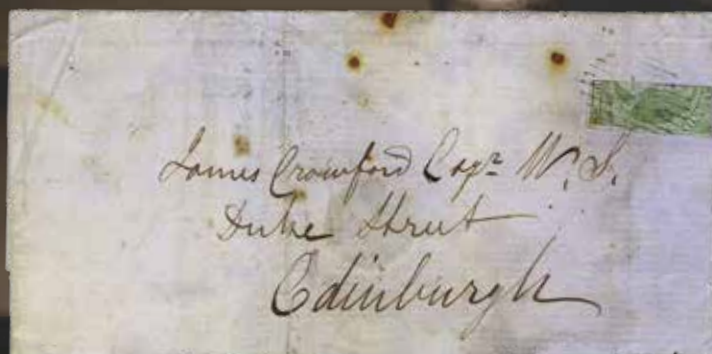 James Crawford Esqr. W. S.
Duke Street
Edinburgh